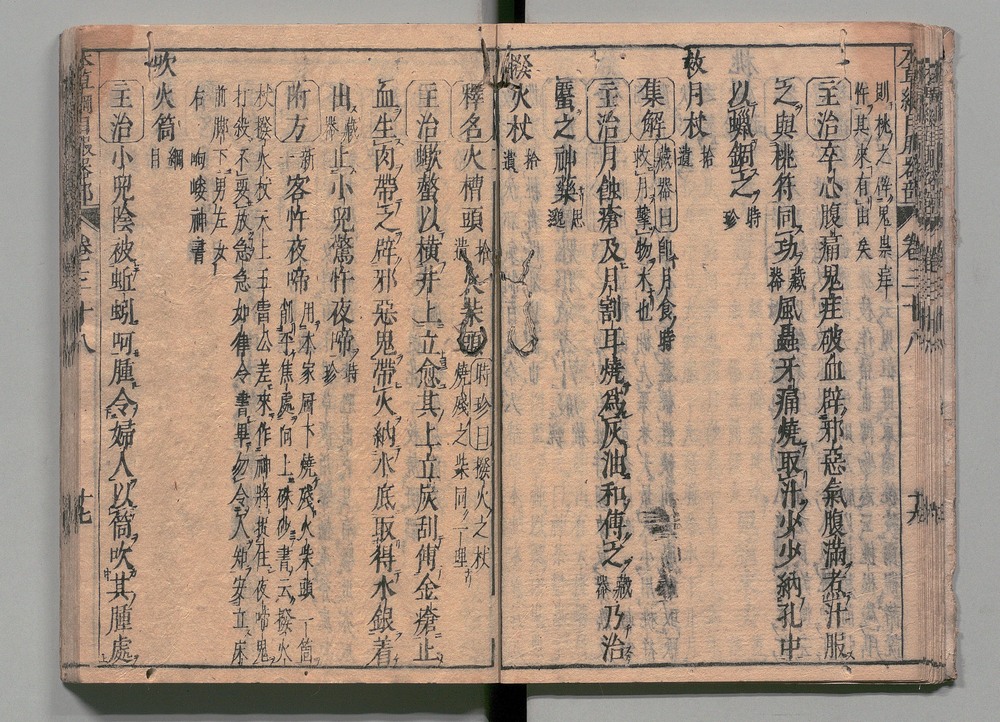 本草綱目服器部 卷三十八
則桃之辟鬼祟疰
忤其來有由矣
主治卒心腹痛鬼疰破血辟邪惡氣腹滿煮汁服
之與桃符同功藏器風蟲牙痛燒取汁少少納孔中
以蠟錮之時珍
救月杖拾遺
集解藏器曰即月食時
救月擊物木也
主治月蝕瘡及月割耳燒爲灰油和傅之藏器乃治
䘌之神藥思邈
撥火杖拾遺
釋名火槽頭拾遺火柴頭時珍曰撥火之杖
燒殘之柴同一理
主治蠍螫以橫井上立愈其上立灰刮傅金瘡止
血生肉帶之辟邪惡鬼帶火納水底取得水銀着
出藏器止小兒驚忤夜啼時珍
附方新一客忤夜啼用本家厨下燒殘火柴頭一箇
削平焦處向上硃砂書云撥火
杖撥火杖天上五雷公差來作神將捉住夜啼鬼
打殺不要放急急如律令書畢勿令人知安立床
前脚下男左女
右 峋嶁神書
吹火筒綱目
主治小兒陰被蚯蚓呵腫令婦人以筒吹其腫處
本草綱目服器部 卷三十八